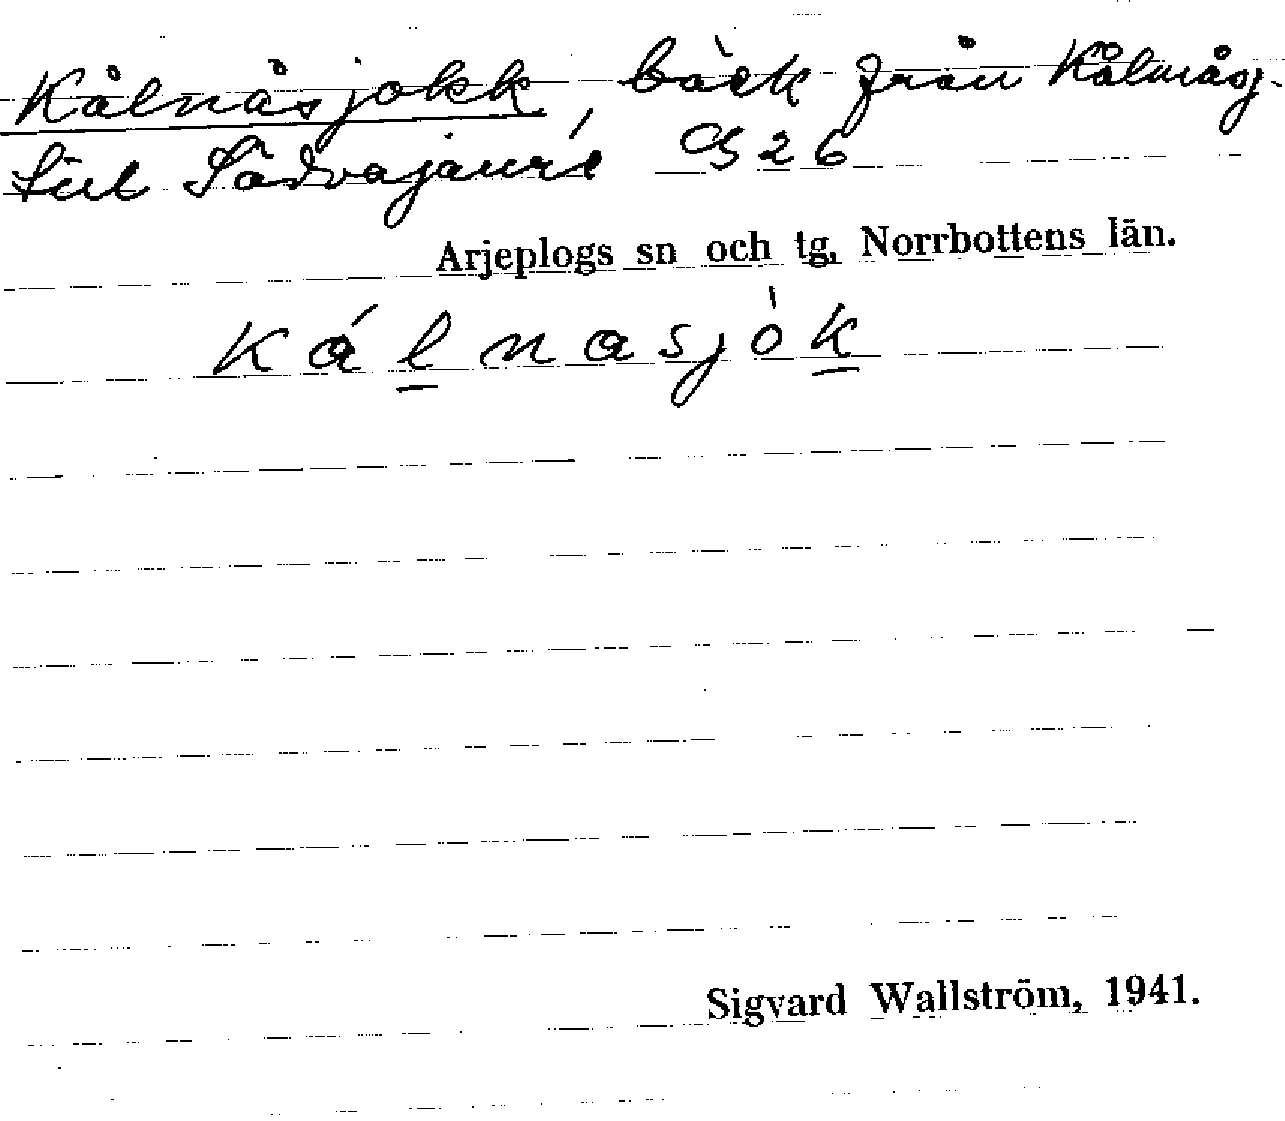 Kålnåsjokk, bäck från Kålmåsj.
till Sädvajaure G26
Arjeplogs sn och tg. Norrbottens län.
Kálnasjòk
Sigvard Wallström, 1941.